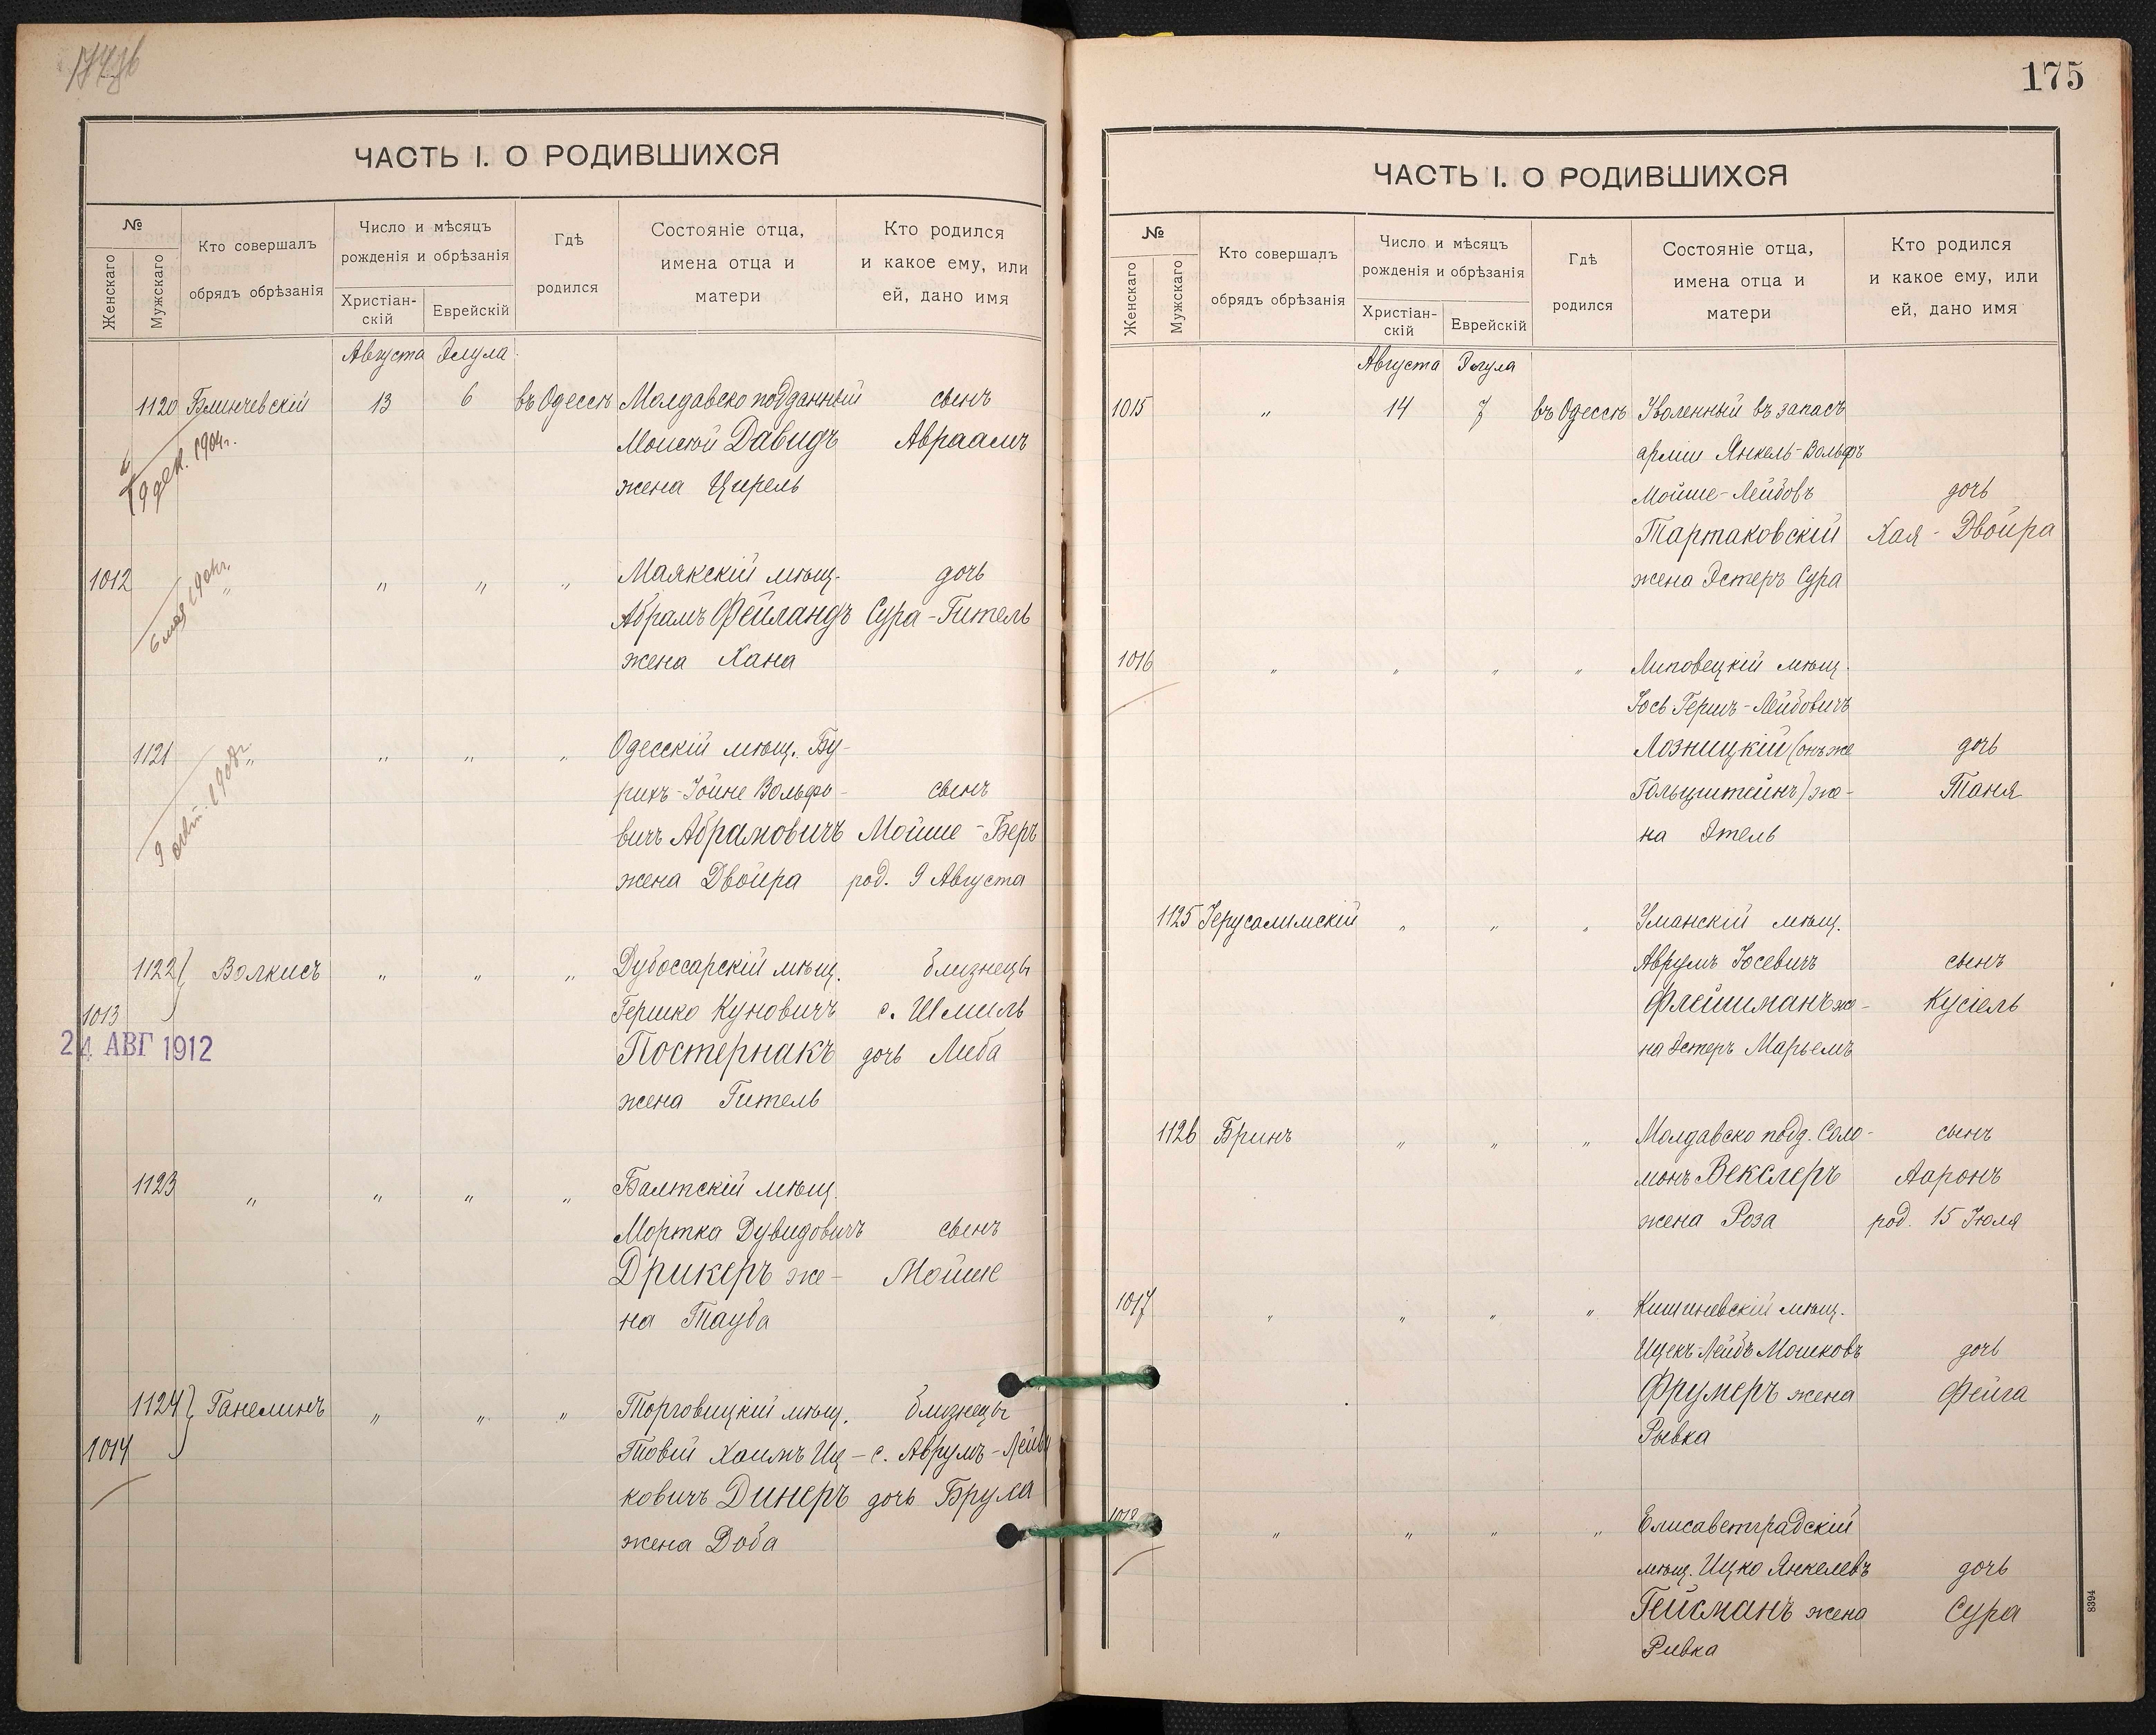 ЧАСТЬ I. О РОДИВШИХСЯ
№
Женскаго
Мужскаго
Кто совершалъ
обрядъ обрѣзанія
Число и мѣсяцъ
рожденія и обрѣзанія
Христіан-
скій
Еврейскій
Гдѣ
родился
Состояніе отца,
имена отца и
матери
Кто родился
и какое ему, или
ей, дано имя
Августа Элула
1120 13 6 въ Одессѣ Молдавско подданный сынъ
Давидъ Авраамъ
жена Цирель
19 дек. 1904г.
1012 „ „ „ „ Маякскій мѣщ. дочь
Абрамъ Фейландъ Сура-Гитель
жена Хана
6 мая
1121 „ „ „ „ Одесскій мѣщ. Бу-
рихъ-Іойне Вольфо- сынъ
вичъ Абрамовичъ Мойше-Беръ
жена Двойра род. 9 Августа
1908г.
1122 Волкисъ „ „ „ Дубоссарскій мѣщ. близнецы
1013 Гершко Куновичъ с. Шмиль
24 АВГ 1912
Постернакъ дочь Либа
жена Гитель
1123 „ „ „ „ Балтскій мѣщ.
Мортка Дувидовичъ сынъ
Дрикеръ же- Мойше
на Тауба
1124 Ганелинъ „ „ „ Торговицкій мѣщ. близнецы
1014 Товій Хаимъ Иц- с. Аврумъ-Лейбъ
ковичъ Динеръ дочь
жена Доба
175
ЧАСТЬ I. О РОДИВШИХСЯ
№
Женскаго
Мужскаго
Кто совершалъ
обрядъ обрѣзанія
Число и мѣсяцъ
рожденія и обрѣзанія
Христіан-
скій
Еврейскій
Гдѣ
родился
Состояніе отца,
имена отца и
матери
Кто родился
и какое ему, или
ей, дано имя
Августа Элула
1015 „ 14 7 въ Одессѣ Уволенный въ запасъ
арміи Янкель-Вольфъ
Мойше-Лейбовъ дочь
Тартаковскій Хая-Двойра
жена Эстеръ Сура
1016 „ „ „ „ Липовецкій мѣщ.
Іось Гершъ-Лейбовичъ
Лозницкій (онъ же дочь
Гольцштейнъ) же- Таня
на Этель
1125 Іерусалимскій „ „ „ Уманскій мѣщ.
Аврумъ Іосевичъ сынъ
Флейшманъ же- Кусіель
на Эстеръ Марьемъ
1126 Бринъ „ „ „ Молдавско подд. Соло- сынъ
монъ Векслеръ Ааронъ
жена Роза род. 15 Іюля
1017 „ „ „ „ Кишиневскій мѣщ.
Ицекъ Лейбъ Мошковъ дочь
Фрумеръ жена Фейга
Рывка
1018 „ „ „ „ Елисаветградскій
мѣщ. Ицко Янкелевъ дочь
Гейсманъ жена Сура
Ривка
8394